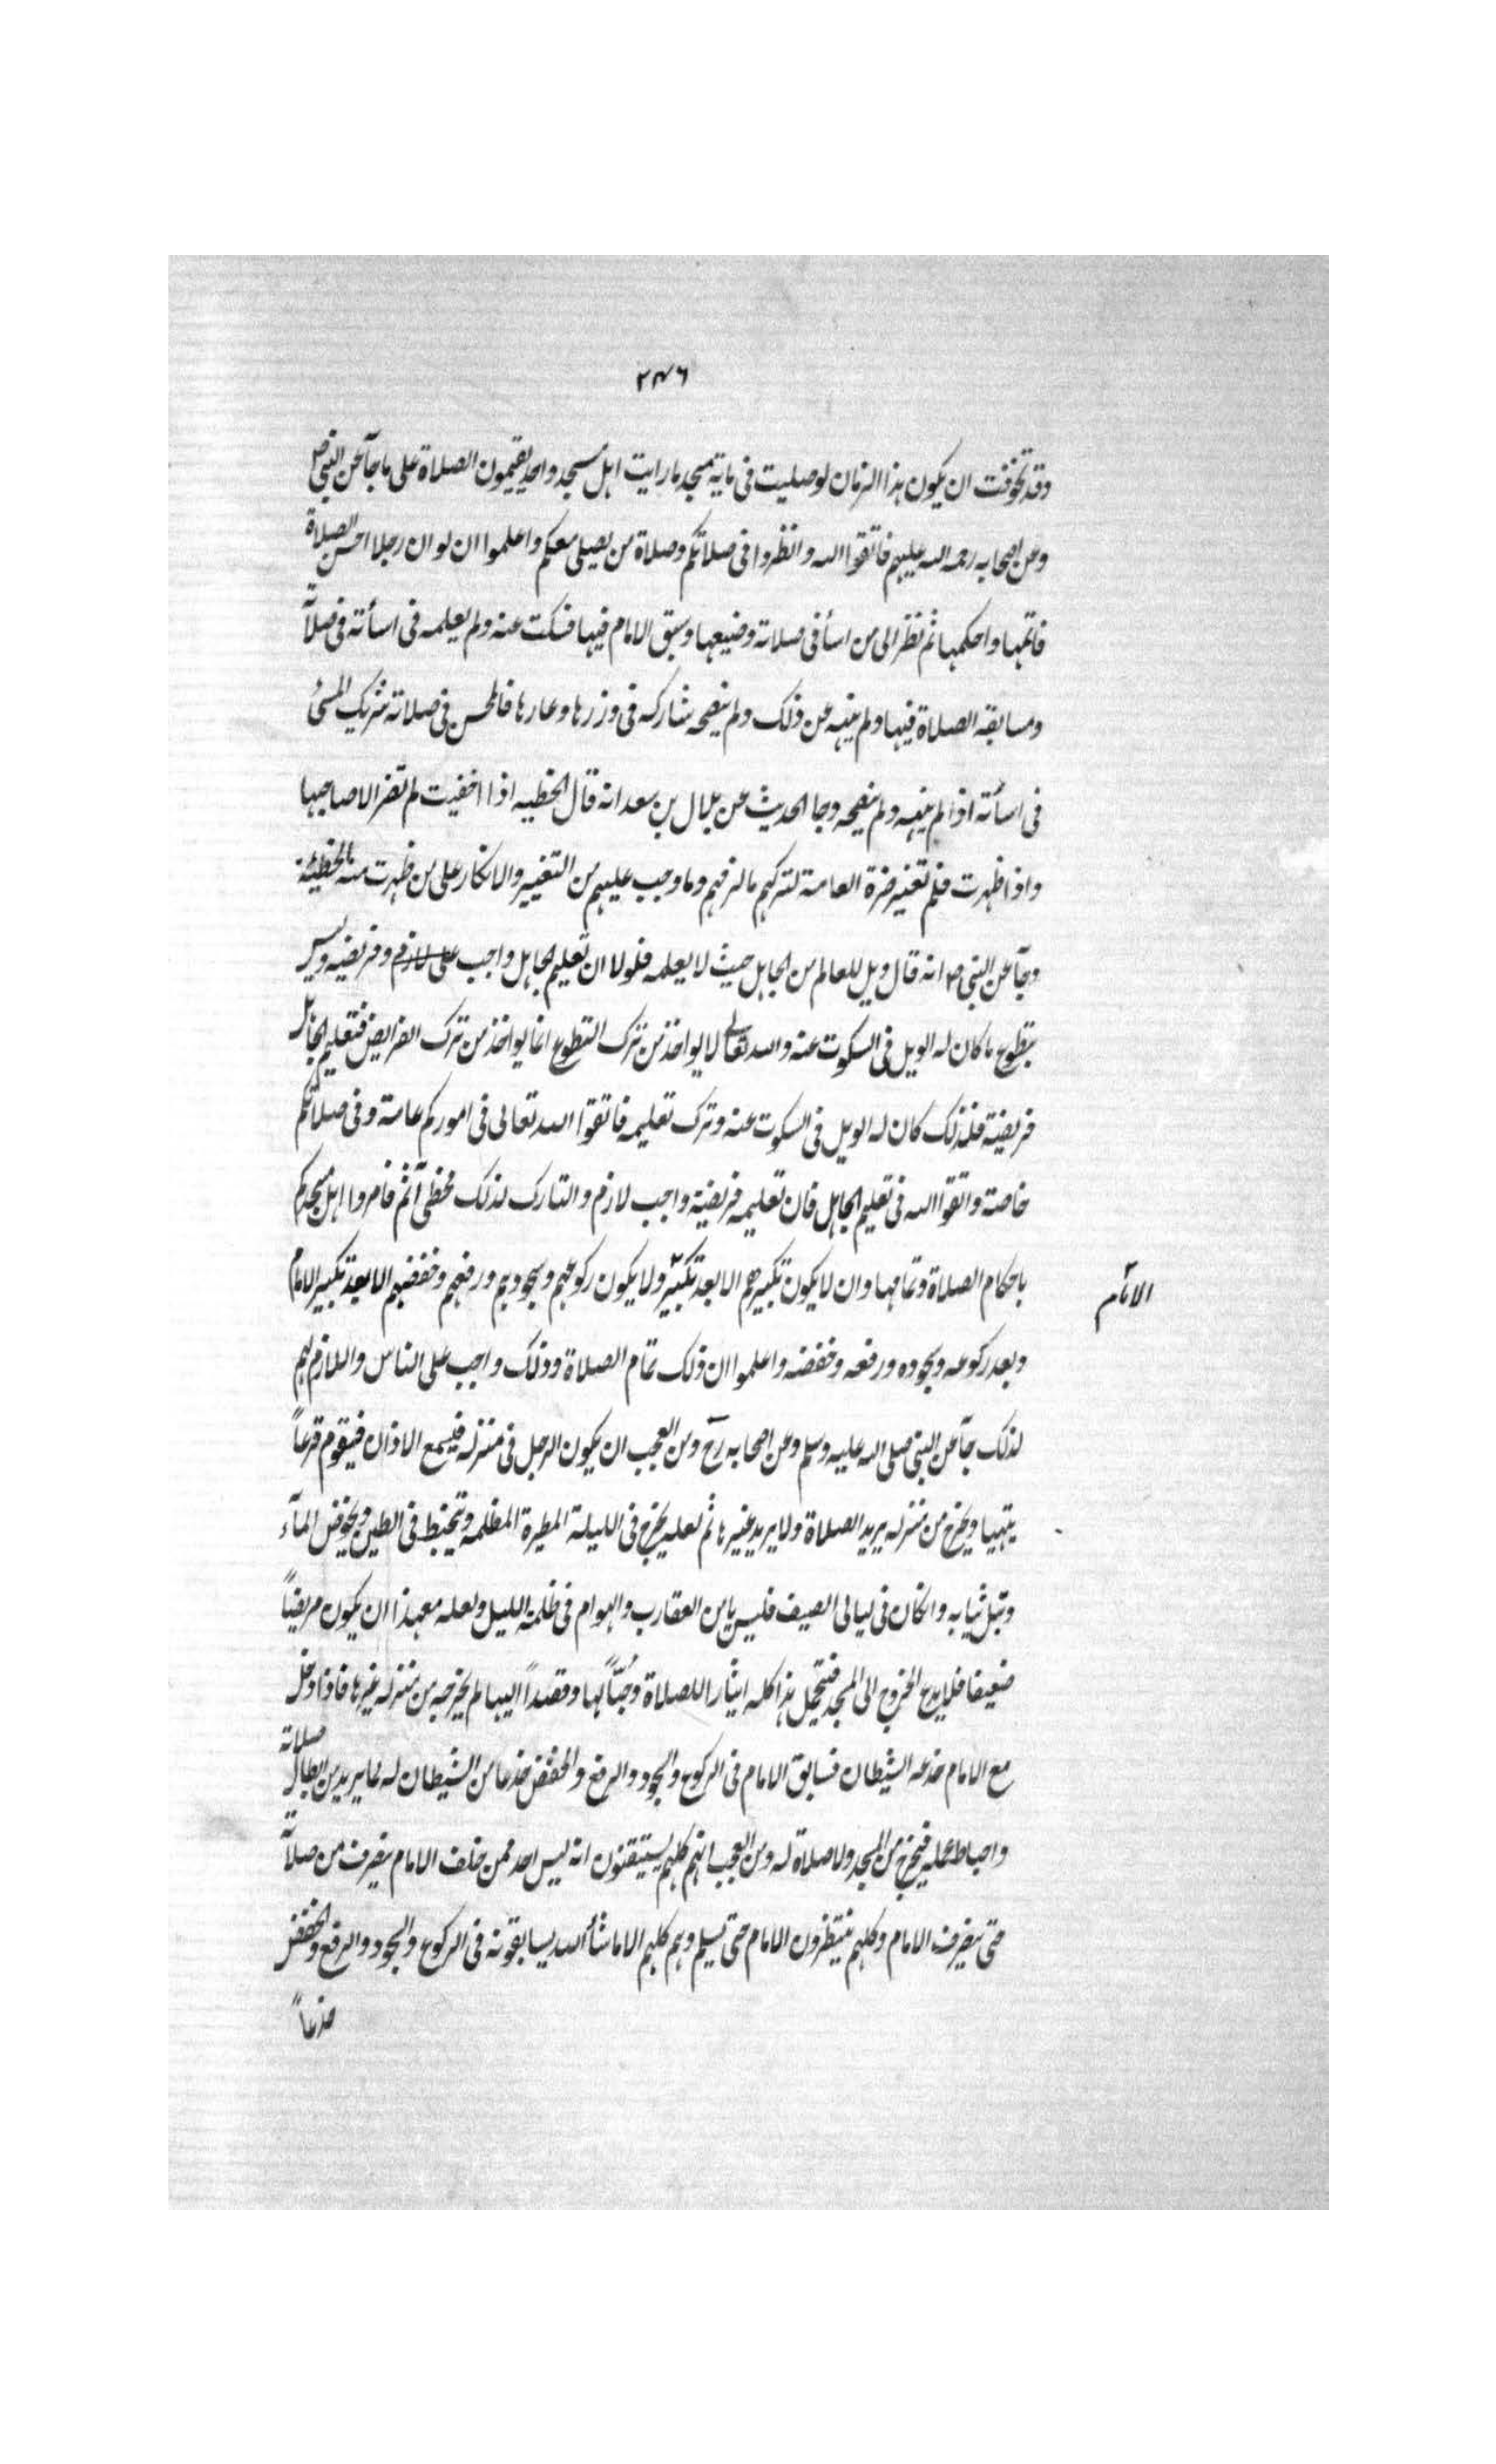 ٢٤٦
وقد تخوفت ان يكون هذا الزمان لو صليت فى ماية مسجد ما رايت اهل مسجد واحد يقيمون الصلاة على ما جآ عن النبى صل
وعن اصحابه رحمة الله عليهم فاتقوا الله وانظروا فى صلاتكم وصلاة من يصلى معكم واعلموا ان لو ان رجلا احسن الصلاة
فاتمها واحكمها ثم نظر الى من اسأ فى صلاته وضيعها وسبق الامام فيها فسكت عنه ولم يعلمه فى اسأته فى صلاته
ومسابقته الصلاة فيها ولم ينهه عن ذلك ولم ينصحه شاركه فى وزرها وعارها فالمحسن فى صلاته شريك المسئ
فى اسأته اذا لم ينهه ولم ينصحه وجا الحديث عن بلال بن سعد انه قال الخطيه اذا اخفيت لم تضر الا صاحبها
واذا ظهرت فلم تغير ضرة العامة لتركهم ما لزمهم وما وجب عليهم من التغيير والانكار على من ظهرت منه الخطيئة
وجآ عن النبى ص انه قال ويل للعالم من الجاهل حيث لا يعلمه فلولا ان تعليم الجاهل واجب على لازم وفريضه وليس
بتطوع ما كان له الويل فى السكوت عنه والله تعالى لا يواخذ من ترك التطوع انما يواخذ من ترك الفرايض فتعليم الجاهل
فريضة فلذلك كان له الويل فى السكوت عنه وترك تعليمه فاتقوا الله تعالى فى اموركم عامة وفى صلاتكم
خاصة واتقوا الله فى تعليم الجاهل فان تعليمه فريضة واجب لازم والتارك لذلك مخطى آثم فامروا اهل مسجدكم
باحكام الصلاة وتمامها وان لا يكون تكبيرهم الا بعد تكبير ولا يكون ركوعهم وسجودهم ورفعهم وخفضهم الا بعد تكبير الامام
الامام
وبعد ركوعه وسجوده ورفعه وخفضه واعلموا ان ذلك تمام الصلاة وذلك واجب على الناس واللازم لهم
لذلك جآ عن النبى صلى الله عليه وسلم وعن اصحابه رح ومن العجب ان يكون الرجل فى منزله فيسمع الاذان فيقوم فزعاً
يتهيا ويخرج من منزله يريد الصلاة ولا يريد غيرها ثم لعله يخرج فى الليلة المطيرة المظلمه ويتخبط فى الطين ويخوض المآء
وتبل ثيابه وان كان فى ليالى الصيف فليس يامن العقارب والهوام فى ظلمة الليل ولعله مع هذا ان يكون مريضاً
ضعيفا فلا يدع الخروج الى المسجد فيتحمل هذا كله ايثارا للصلاة وحُبّاً لها وقصداً اليها لم يخرجه من منزله غيرها فاذا دخل
مع الامام خدعه الشيطان فسابق الامام فى الركوع والسجود والرفع والخفض خدعا من الشيطان له لما يريد من ابطال صلاته
واحباط عمله فيخرج من المسجد ولا صلاة له ومن العجب انهم كلهم يستيقنون انه ليس احد ممن خلف الامام ينصرف من صلاته
حتى ينصرف الامام وكلهم ينتظرون الامام حتى يسلم وهم كلهم الا ما شأ الله يسابقونه فى الركوع والسجود والرفع والخفض
خدعاً